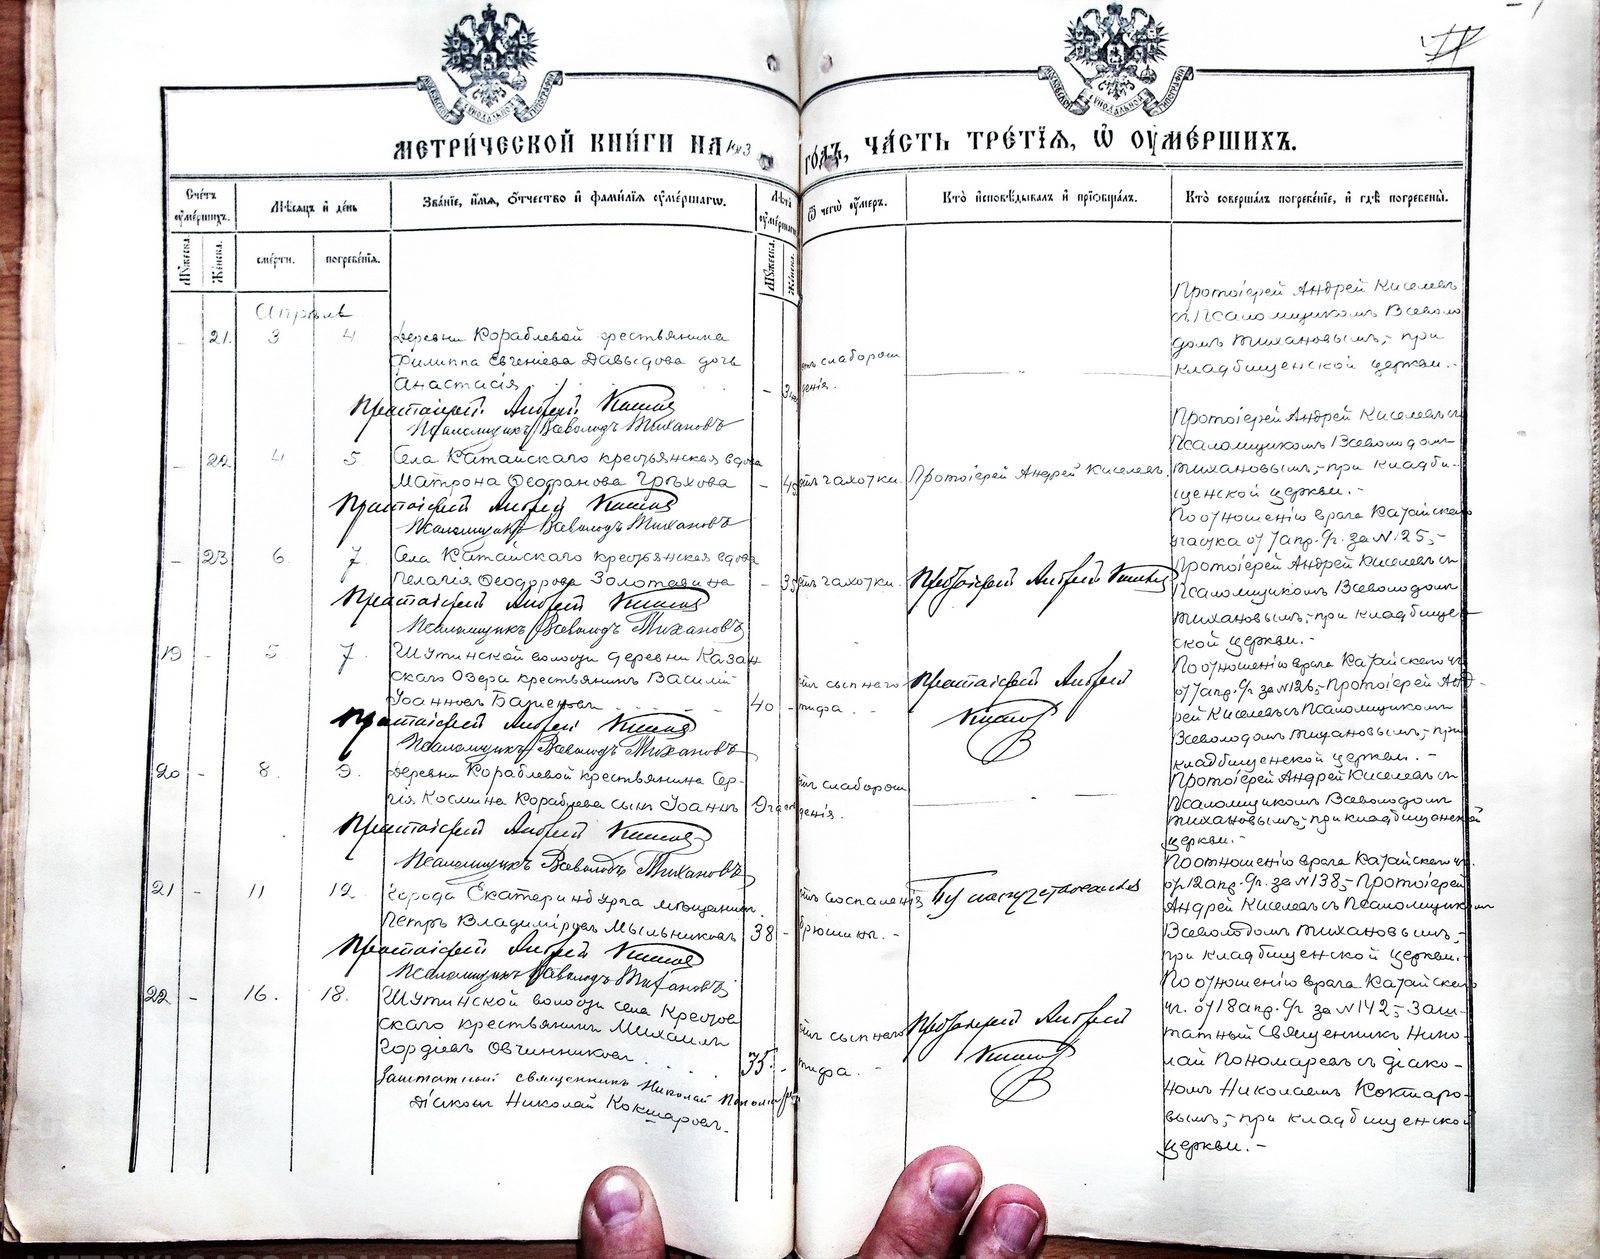 МЕТРИЧЕСКОЙ КНИГИ НА
годъ, ЧАСТЬ ТРЕТІЯ, Ѡ ОУМЕРШИХЪ.
Счетъ оумершихъ.
Мѣсяцъ и день
Званіе, имя, отчество и фамилія оумершагѡ.
Лѣта оумершагѡ
Ѿ чегѡ оумеръ.
Кто исповѣдывалъ и пріобщалъ.
Кто совершалъ погребеніе, и гдѣ погребены.
Мужеска.
Женска.
смерти.
погребенія.
Мужеска.
Женска.
Апрѣль
- 21. 3 4
Деревни Кораблевой крестьянина
Филиппа Евгеніева Давыдова дочь
Анастасія
отъ слаборож
денія.
Протоіерей Андрей Киселевъ
съ Псаломщикомъ Всеволо
домъ Тихановымъ,- при
кладбищенской церкви.-
Протоіерей Андрей Киселевъ
Псаломщикъ Всеволодъ Тихановъ
- 22 4 5
Села Катайскаго крестьянская вдова
Матрона Ѳеофанова Грѣхова
отъ чахотки.
Протоіерей Андрей Киселевъ.
Протоіерей Андрей Киселевъ съ
Псаломщикомъ Всеволодомъ
Тихановымъ,- при кладби-
щенской церкви.-
Протоіерей Андрей Киселевъ
Псаломщикъ Всеволодъ Тихановъ
- 23 6 7.
Села Катайскаго крестьянская вдова
Пелагія Ѳеодорова Золотавина
- 35
отъ чахотки.
Протоіерей Андрей Киселевъ
По отношенію врача Катайскаго
участка от 7 апр. с/г. за № 125,-
Протоіерей Андрей Киселевъ съ
Псаломщикомъ Всеволодомъ
Тихановымъ,- при кладбищен
ской церкви.-
Протоіерей Андрей Киселевъ
Псаломщикъ Всеволодъ Тихановъ
19 - 5 7.
Шутинской волости деревни Казан
скаго Озера крестьянинъ Василій
Іоанновъ Баженовъ
40 -
отъ сыпнаго
тифа.
Протоіерей Андрей
Киселевъ
По отношенію врача Катайскаго уч.
от 7 апр. с/г. за № 126,- Протоіерей Анд-
рей Киселевъ съ Псаломщикомъ
Всеволодомъ Тихановымъ,- при
кладбищенской церкви.-
Протоіерей Андрей Киселевъ
Псаломщикъ Всеволодъ Тихановъ
20 - 8. 9.
Деревни Кораблевой крестьянина Сер-
гія Космина Кораблева сынъ Іоаннъ
отъ слаборож
денія.
Протоіерей Андрей Киселевъ съ
Псаломщикомъ Всеволодомъ
Тихановымъ,- при кладбищенской
церкви.-
Протоіерей Андрей Киселевъ
Псаломщикъ Всеволодъ Тихановъ
21 - 11 12.
Города Екатеринбурга мѣщанинъ
Петръ Владиміровъ Мыльниковъ
38 -
отъ воспаленія
брюшины.-
По отношенію врача Катайскаго уч.
от 12 апр. с/г. за № 138,- Протоіерей
Андрей Киселевъ съ Псаломщикомъ
Всеволодомъ Тихановымъ,-
при кладбищенской церкви.-
Протоіерей Андрей Киселевъ
Псаломщикъ Всеволодъ Тихановъ
22 - 16. 18.
Шутинской волости села Крестов
скаго крестьянинъ Михаилъ
Гордіевъ Овчинниковъ
35 -
отъ сыпнаго
тифа.-
Протоіерей Андрей
Киселевъ
По отношенію врача Катайскаго
уч. от 18 апр. с/г за № 142,- Заш-
татный Священникъ Нико-
лай Пономаревъ съ діако-
номъ Николаемъ Кокшаро-
вымъ,- при кладбищенской
церкви.-
Заштатный священникъ Николай Пономаревъ
Діаконъ Николай Кокшаровъ.